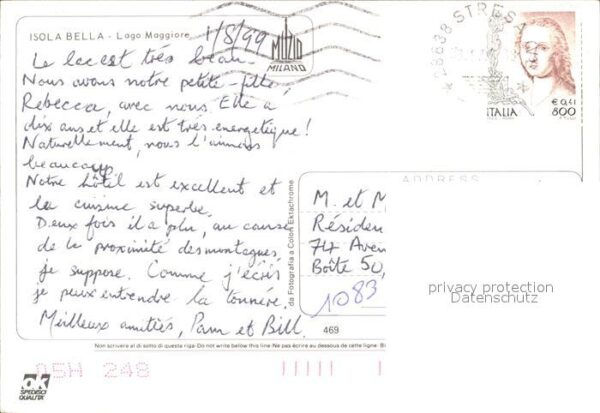 ISOLA BELLA - Lago Maggiore
1/8/99
MUZIO
MILANO
28838 STRESA
€ 0,41
ITALIA 800
Le lac est très beau.
Nous avons notre petite-fille,
Rebecca, avec nous. Elle a
dix ans et elle est très énergetique!
Naturellement, nous l'aimons
beaucoup.
Notre hôtel est excellent et
la cuisine superbe.
Deux fois il a plu, au cause
de la proximité des montagnes,
je suppose. Comme j'écris
je peux entendre la tonnère.
Meilleux amitiés, Pam et Bill.
ADDRESS
M. et M
Résiden
74 Aven
Boîte 50,
1083
da Fotografia a Colori Ektachrome
privacy protection
Datenschutz
469
Non scrivere al di sotto di questa riga - Do not write below this line - Ne pas écrire au dessous de cette ligne - B
05H 248
OK
SPEDISCI
QUALITA'